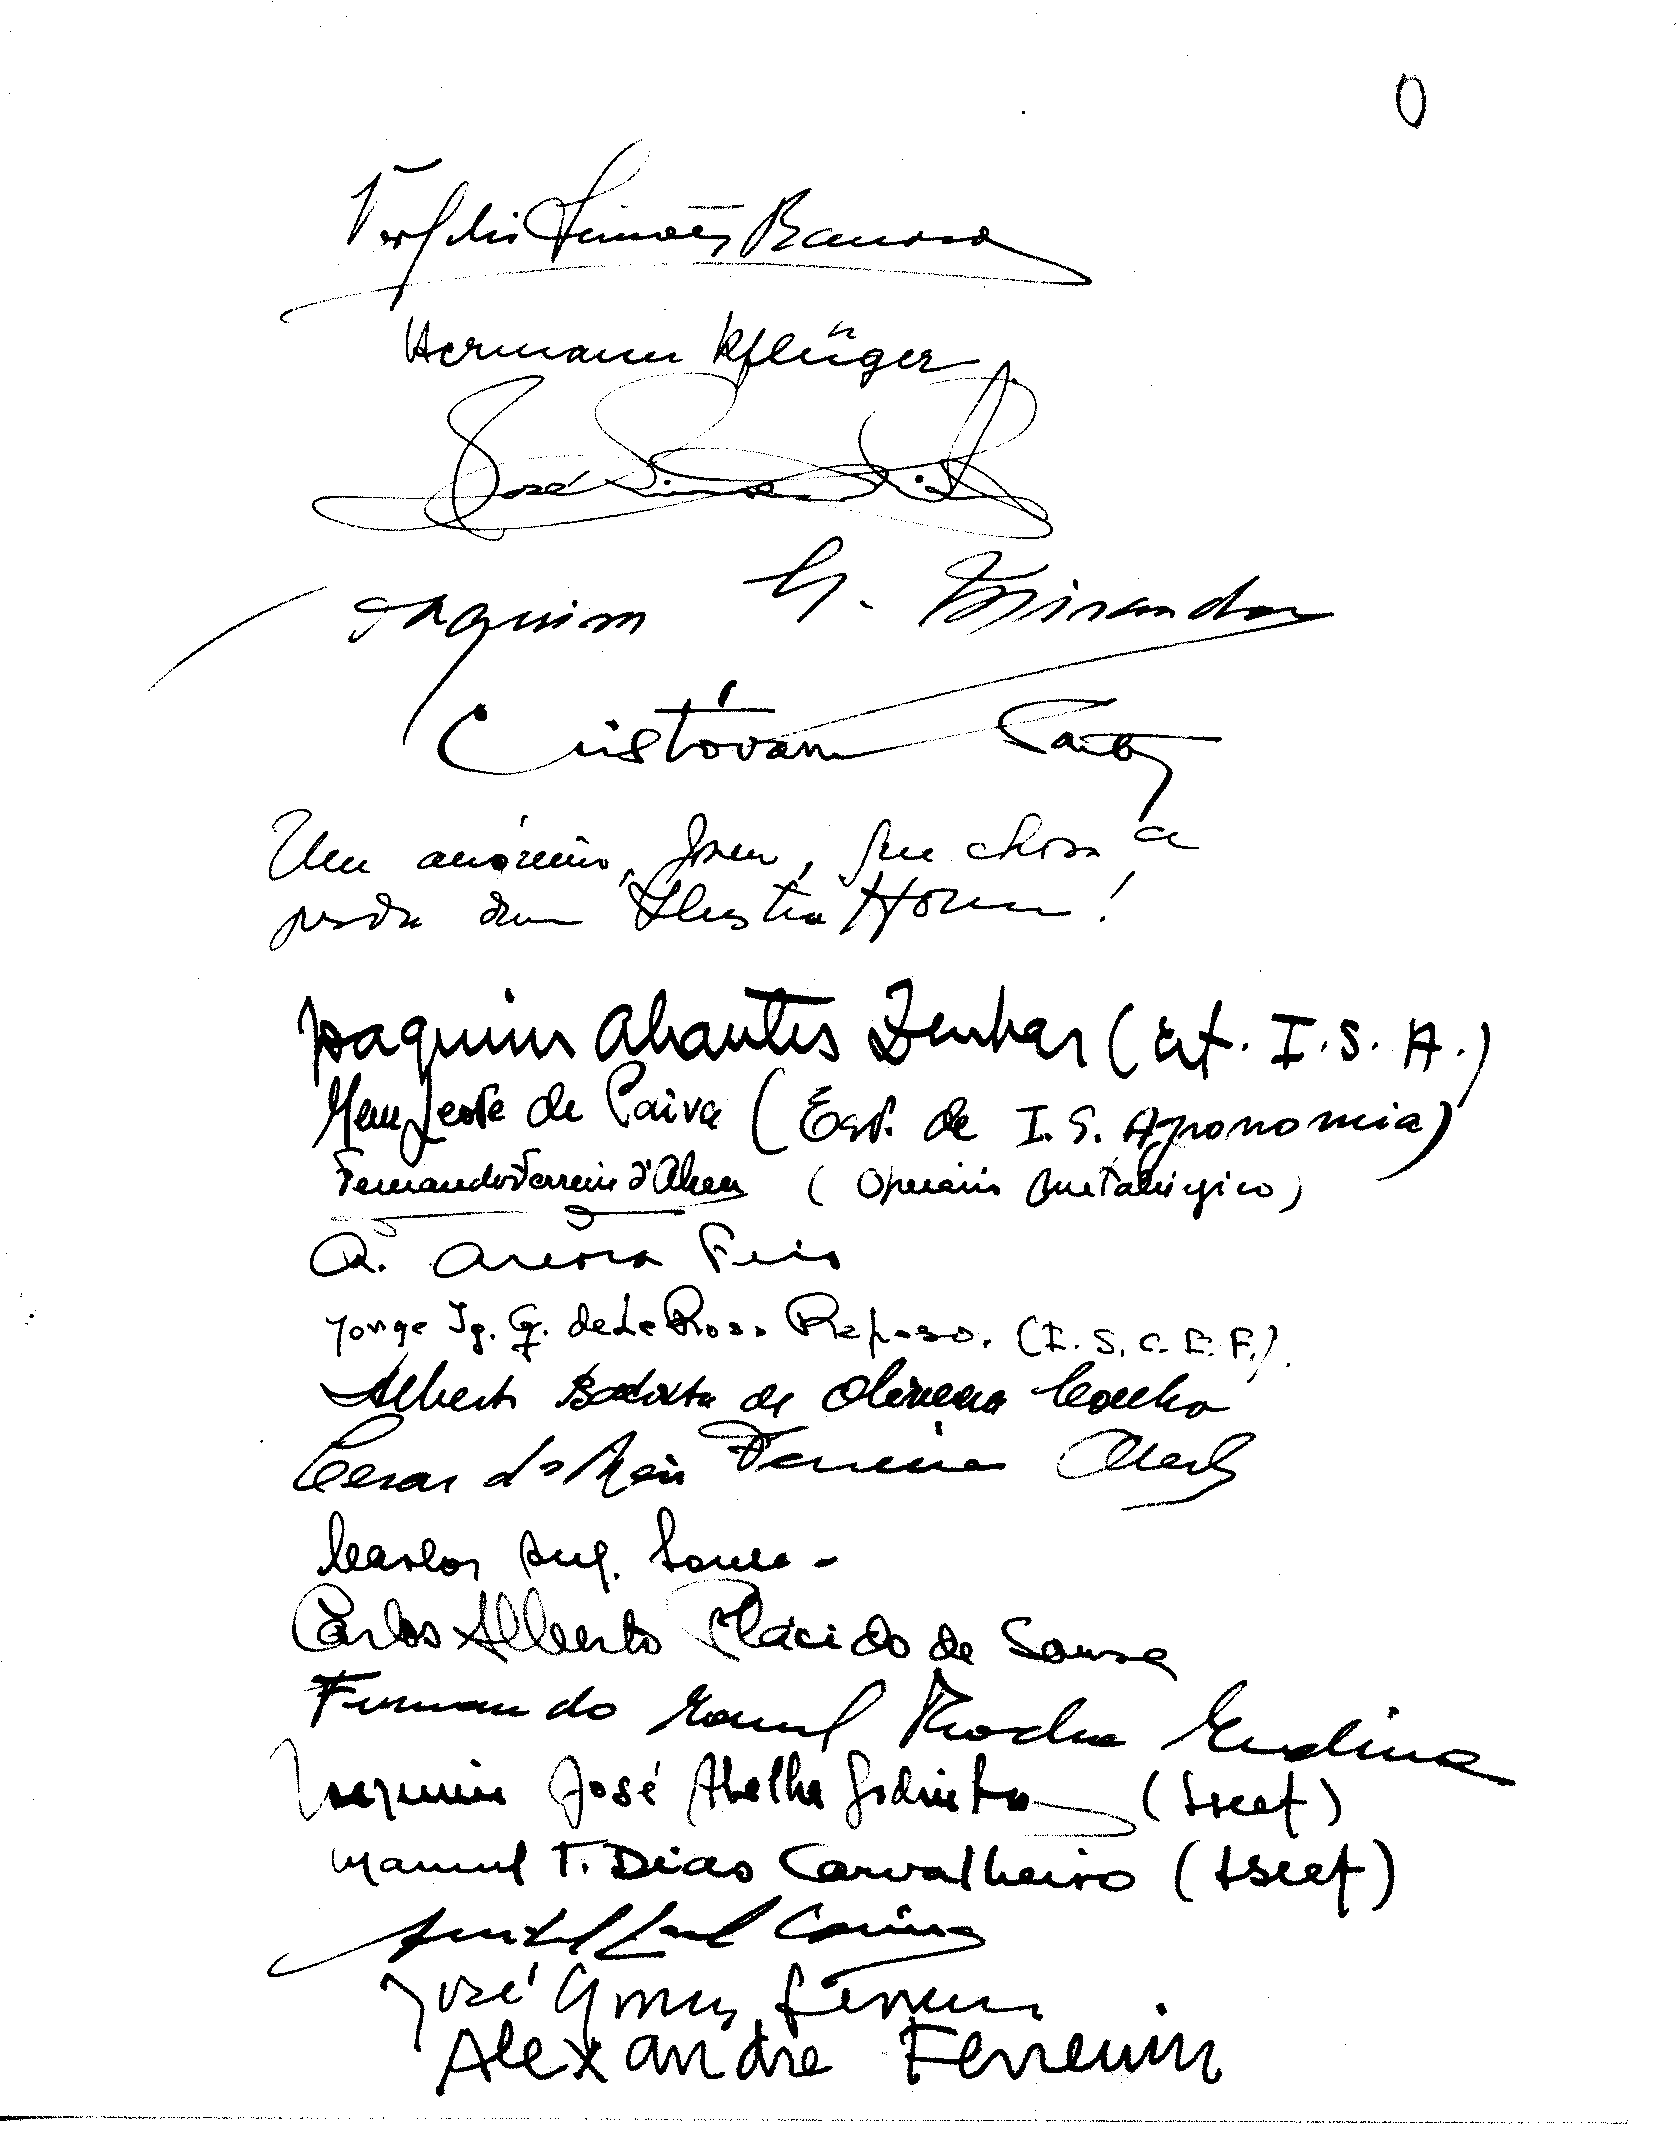 0
Simões Barroso
Hermann Pflüger
José
Joaquim G. Miranda
Cristóvam
Um anónimo, jovem, que chora a
perda dum Ilustre Homem!
Joaquim Abantes (Est. I.S.A.)
de Paiva (Est. de I.S. Agronomia)
Fernando Ferreira d'Abreu (Operário metalúrgico)
A. Areosa Feio
Jorge Ig. G. de La Rosa Raposo. (I.S.C.E.F.).
Alberto Batista de Oliveira Coelho
Cesar Ferreira
Carlos Aug. Sousa -
Carlos Alberto Plácido de Sousa
Fernando Manuel Rocha Medina
Joaquim José Abelha Godinho (Iscef)
Manuel T. Dias Carvalheiro (Iscef)
José Gomes Ferreira
Alexandre Ferreira